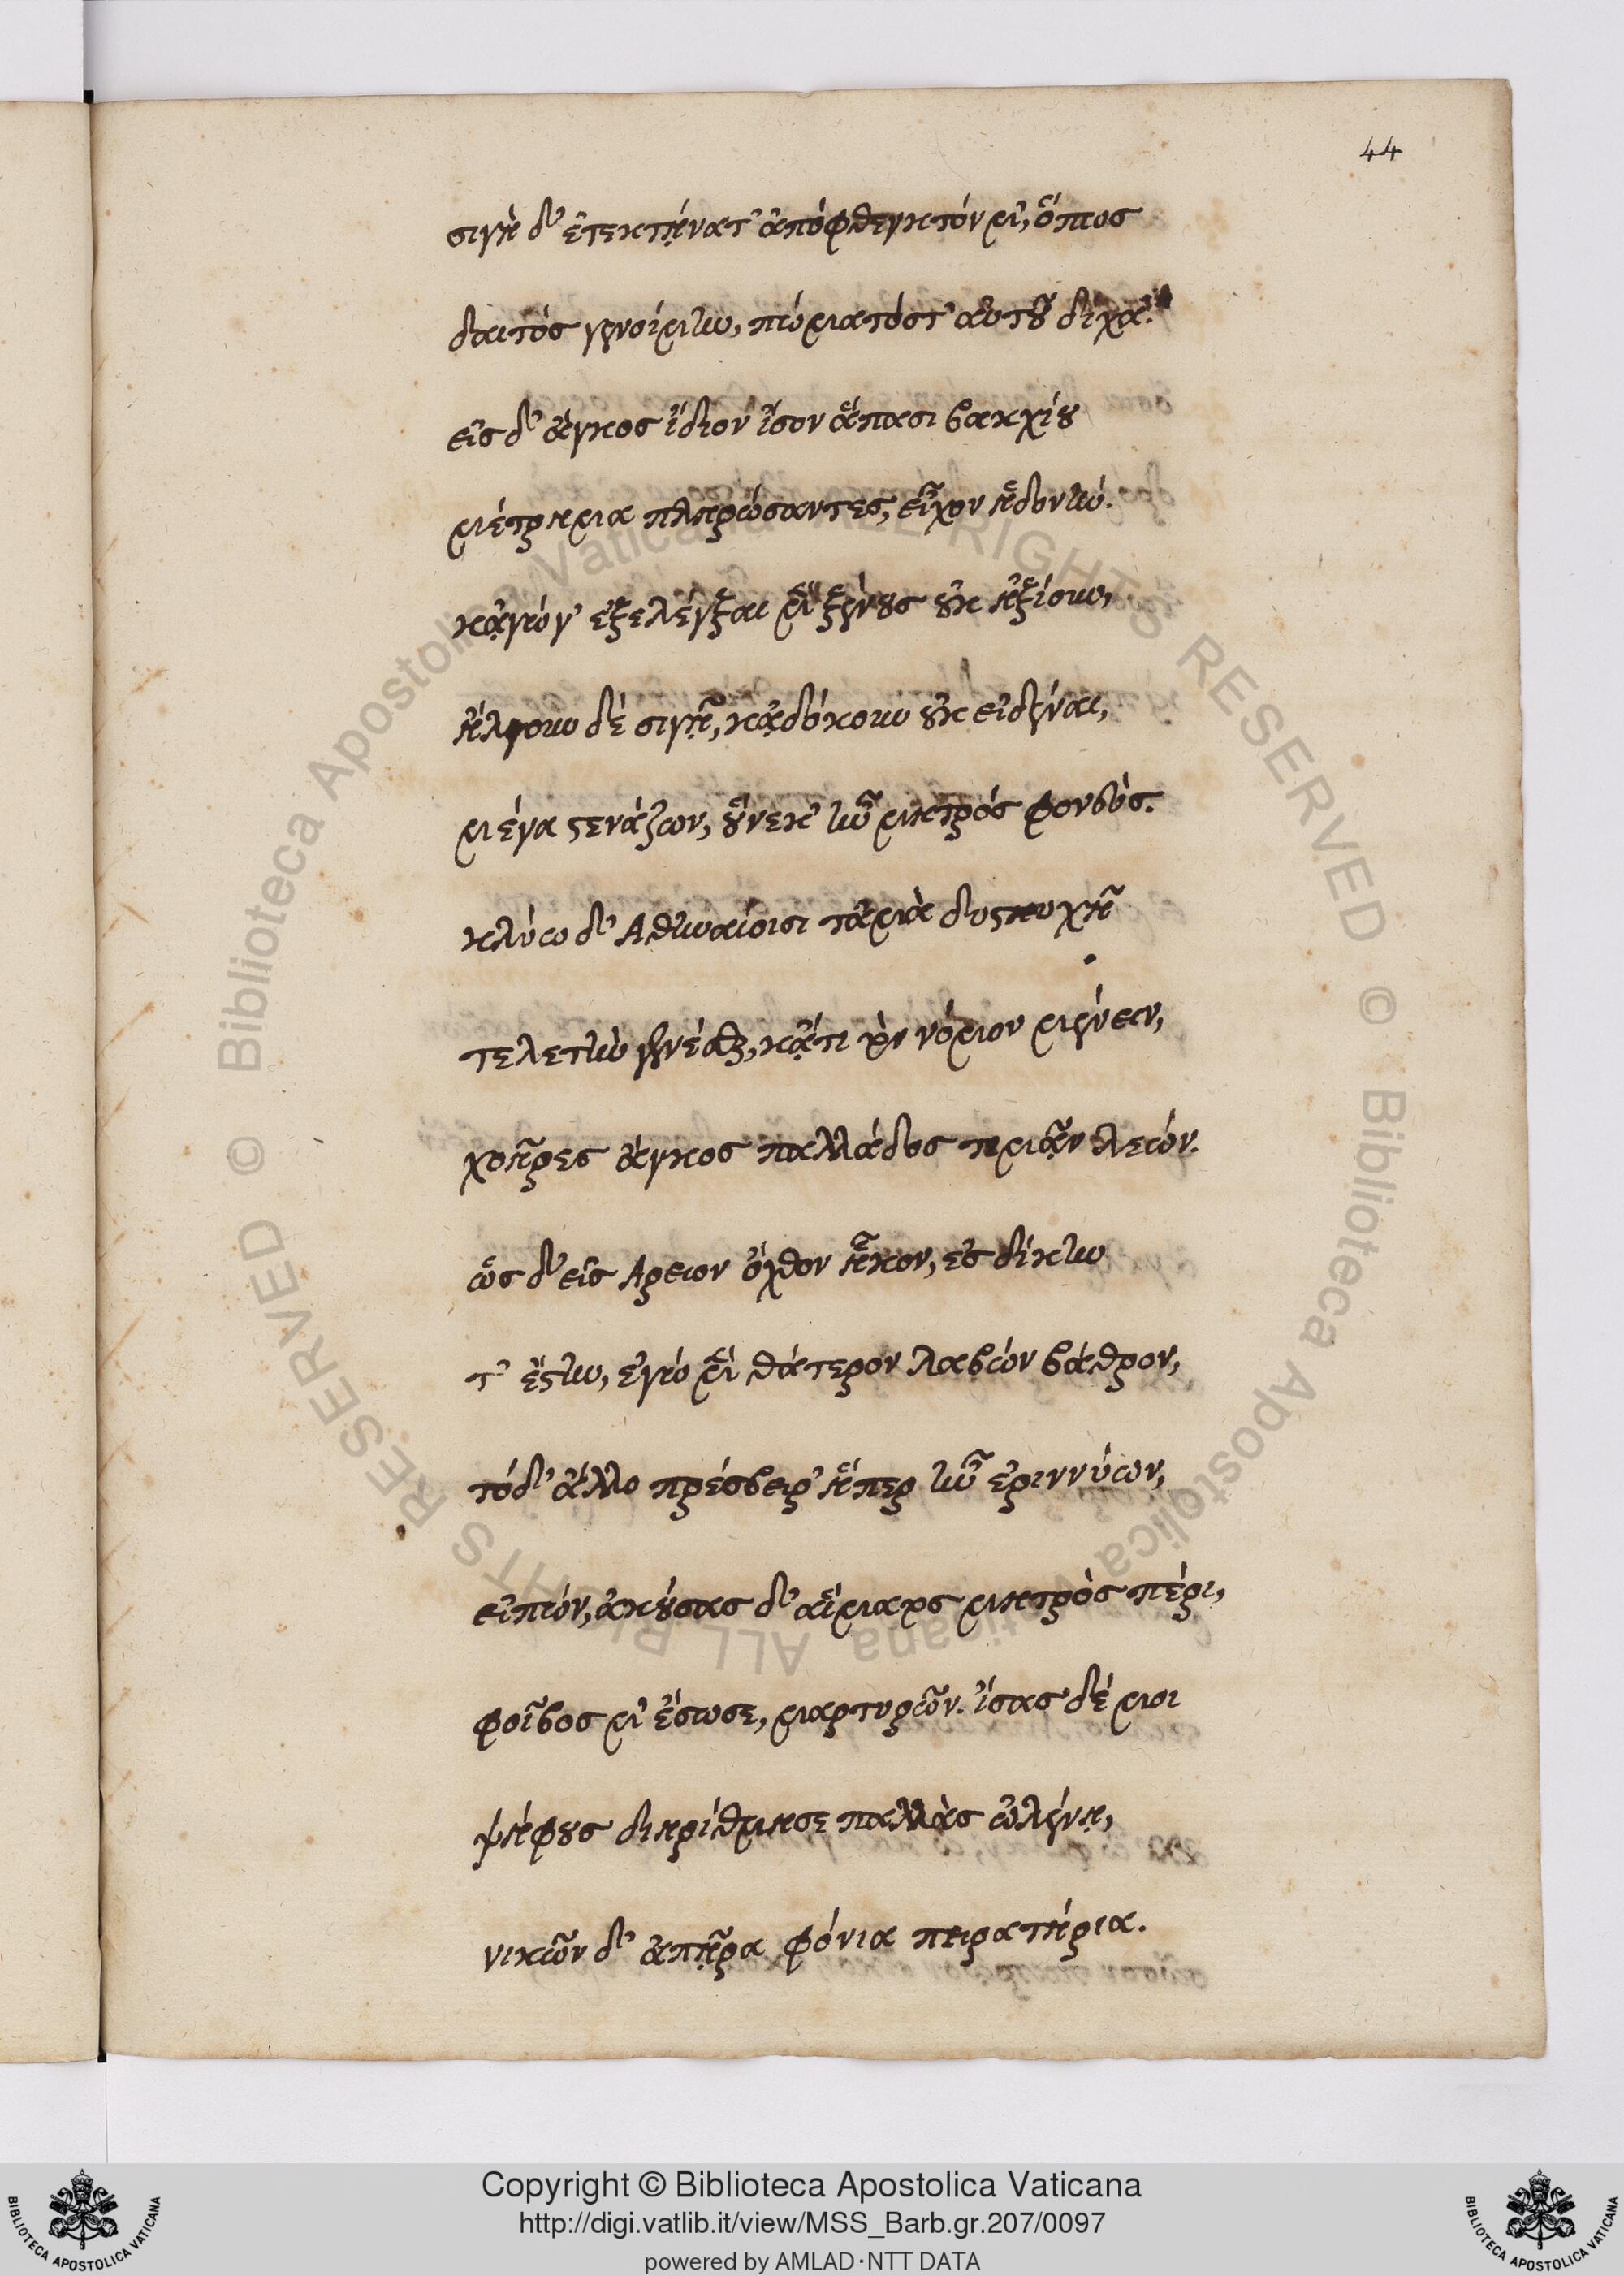 44
σιγῆ δ' ἐτεκτῄνατ' ἀπόφθεγκτόν μ', ὅπως
δαιτός γενοίμην, πώματόστ' αὐτοῦ δίχα.
εἰς δ' ἄγκος ἴδιον ἴσον ἅπασι βακχίου
μέτρημα πληρώσαντες, εἶχον ἡδονήν.
κᾀγώγ' ἐξελέγξαι μὲν ξένους οὐκ ἠξίουν,
ἤλγουν δέ σιγῇ, κᾀδόκουν οὐκ εἰδέναι,
μέγα στενάζων, οὕνεκ' ἦν μητρός φονεύς.
κλύω δ' Ἀθηναίοισι τἀμὰ δυστυχῆ
τελετὴν γενέσθαι, κᾄτι τὸν νόμον μένειν,
χοῆρες ἄγκος παλλάδος τιμᾷν λεών.
ὡς δ' εἰς Ἄρειον ὄχθον ἧκον, ἐς δίκην
τ' ἔστην, ἐγώ μὲν θάτερον λαβών βάθρον,
τό δ' ἄλλο πρέσβειρ' ἥπερ ἦν ἐριννύων,
εἰπών, ἀκούσας δ' αἵματος μητρὸς πέρι,
φοῖβος μ' ἔσωσε, μαρτυρῶν. ἴσας δέ μοι
ψήφους διηρίθμησε παλλὰς ὠλένῃ,
νικῶν δ' ἀπῇρα φόνια πειρατήρια.
Copyright © Biblioteca Apostolica Vaticana
http://digi.vatlib.it/view/MSS_Barb.gr.207/0097
powered by AMLAD·NTT DATA
BIBLIOTECA APOSTOLICA VATICANA
BIBLIOTECA APOSTOLICA VATICANA
© Biblioteca Apostolica Vaticana ALL RIGHTS RESERVED © Biblioteca Apostolica Vaticana ALL RIGHTS RESERVED